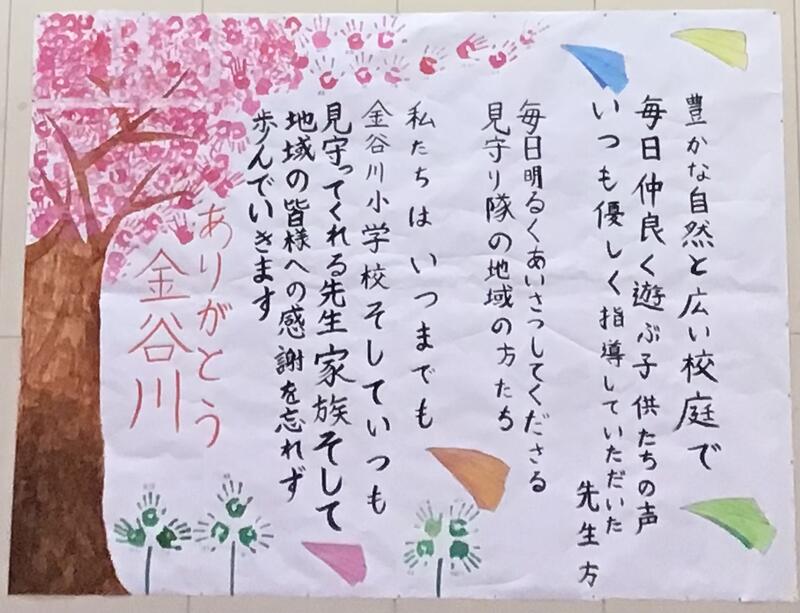 豊かな自然と広い校庭で
毎日仲良く遊ぶ子供たちの声
いつも優しく指導していただいた
先生方
毎日明るくあいさつしてくださる
見守り隊の地域の方たち
私たちはいつまでも
金谷川小学校そしていつも
見守ってくれる先生家族そして
地域の皆様への感謝を忘れず
歩んでいきます
ありがとう
金谷川